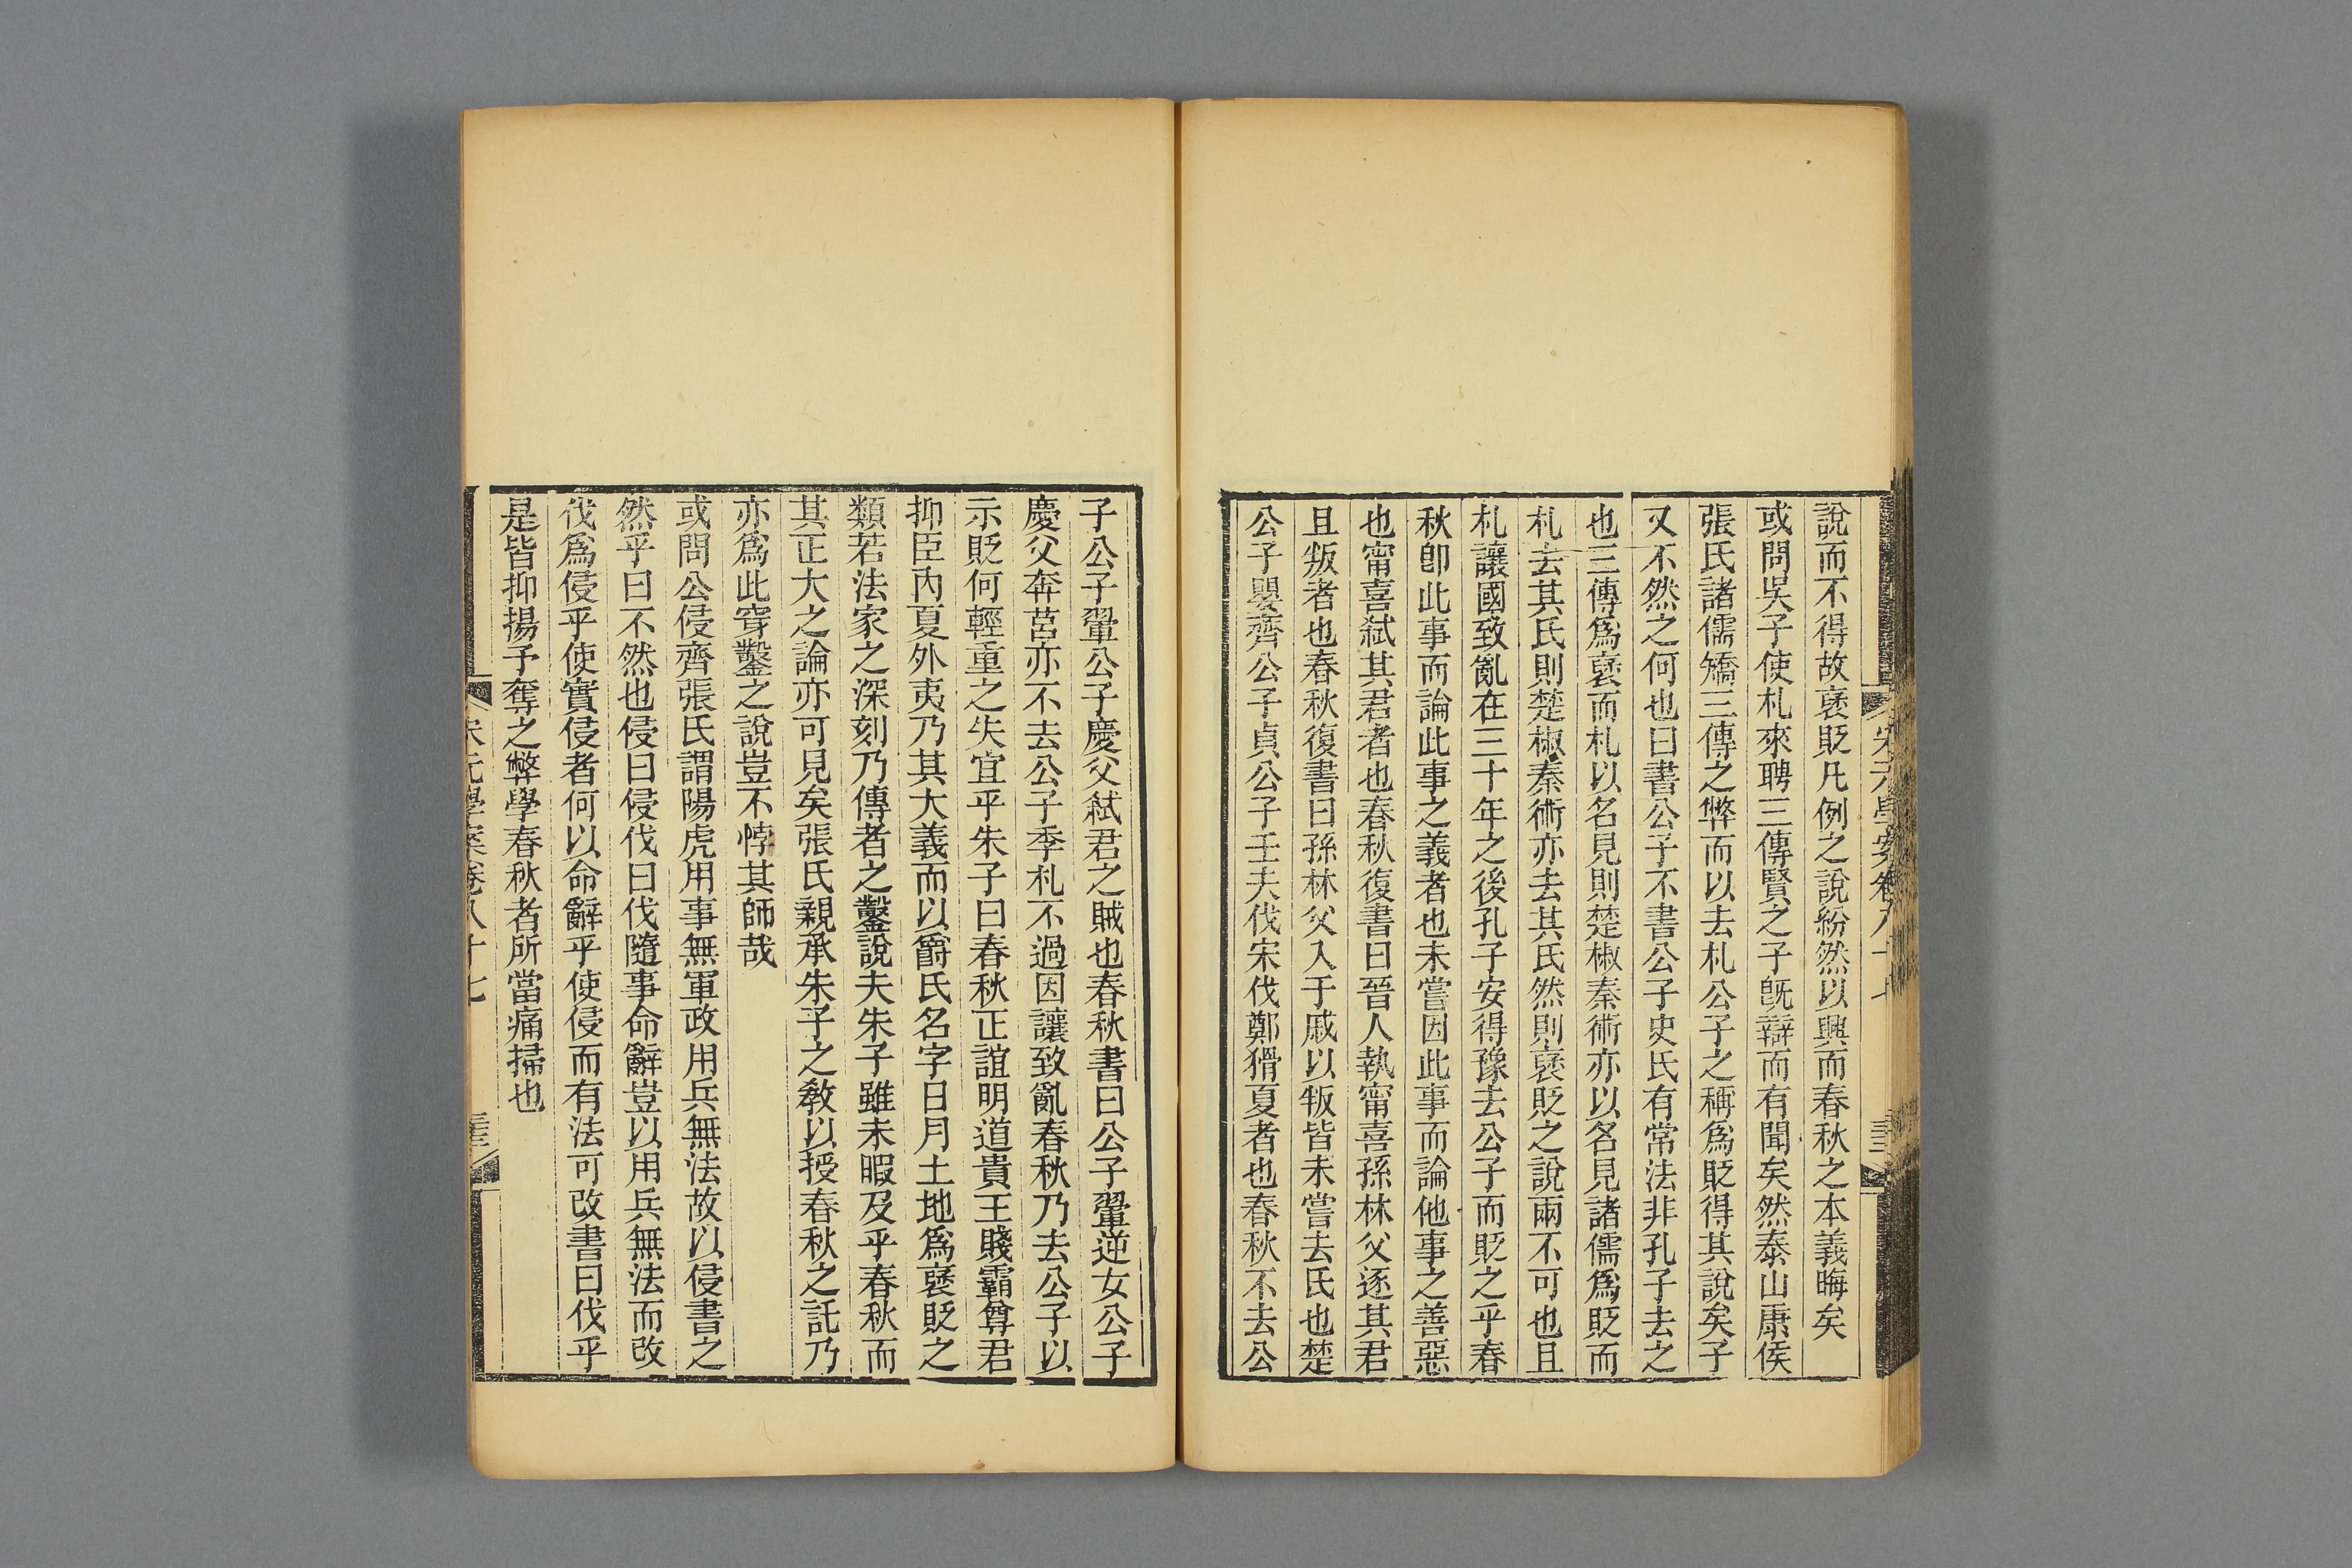 說而不得故裦貶凡例之說紛然以興而春秋之本義晦矣
或問吳子使札來聘三傳賢之子旣辯而有聞矣然泰山康侯
張氏諸儒矯三傳之弊而以去札公子之稱爲貶得其說矣子
又不然之何也曰書公子不書公子史氏有常法非孔子去之
也三傳爲裦而札以名見則楚椒秦術亦以名見諸儒爲貶而
札去其氏則楚椒秦術亦去其氏然則裦貶之說兩不可也且
札讓國致亂在三十年之後孔子安得豫去公子而貶之乎春
秋卽此事而論此事之義者也未嘗因此事而論他事之善惡
也甯喜弑其君者也春秋復書曰晉人執甯喜孫林父逐其君
且叛者也春秋復書曰孫林父入于戚以叛皆未嘗去氏也楚
公子嬰齊公子貞公子壬夫伐宋伐鄭猾夏者也春秋不去公
子公子翬公子慶父弑君之賊也春秋書曰公子翬逆女公子
慶父奔莒亦不去公子季札不過因讓致亂春秋乃去公子以
示貶何輕重之失宜乎朱子曰春秋正誼明道貴王賤霸尊君
抑臣內夏外夷乃其大義而以爵氏名字日月土地爲裦貶之
類若法家之深刻乃傳者之鑿說夫朱子雖未暇及乎春秋而
其正大之論亦可見矣張氏親承朱子之敎以授春秋之託乃
亦爲此穿鑿之說豈不悖其師哉
或問公侵齊張氏謂陽虎用事無軍政用兵無法故以侵書之
然乎曰不然也侵曰侵伐曰伐隨事命辭豈以用兵無法而改
伐爲侵乎使實侵者何以命辭乎使侵而有法可改書曰伐乎
是皆抑揚予奪之弊學春秋者所當痛掃也
宋元學案卷八十七